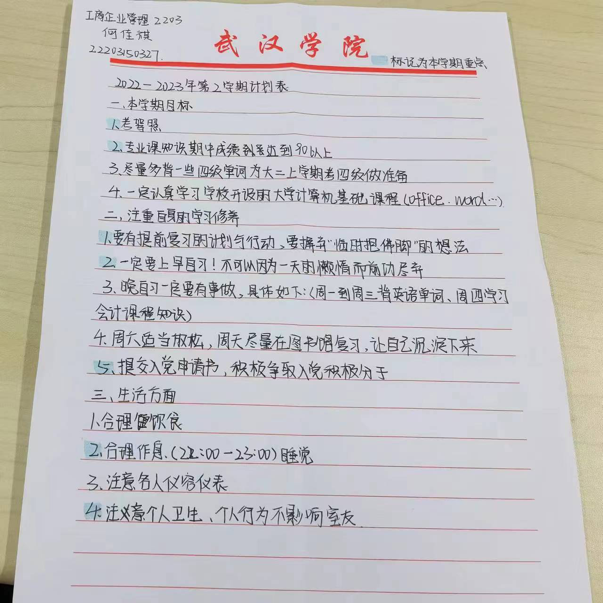 工商企业管理2203
何佳祺
22203150327.
武汉学院
标记为本学期重点
2022-2023年第2学期计划表
一.本学期目标
1.考驾照
2.专业课知识期中成绩到考达到90以上
3.尽量多背一些四级单词为大二上学期考四级做准备
4.一定认真学习学校开设的大学计算机基础课程(office.word…)
二,注重自身的学习修养
1.要有提前复习的计划与行动,要摒弃“临时抱佛脚”的想法
2.一定要上早自习!不可以因为一天的懒惰而前功尽弃
3.晚自习一定要有事做,具体如下:(周一到周三背英语单词、周四学习
会计课程知识)
4.周六适当放松,周天尽量在图书馆复习,让自己沉淀下来
5.提交入党申请书,积极争取入党积极分子
三、生活方面
1.合理健饮食
2.合理作息.(22:00-23:00)睡觉
3.注意名人仪容仪表
4.注义意个人卫生、个人行为不影响室友